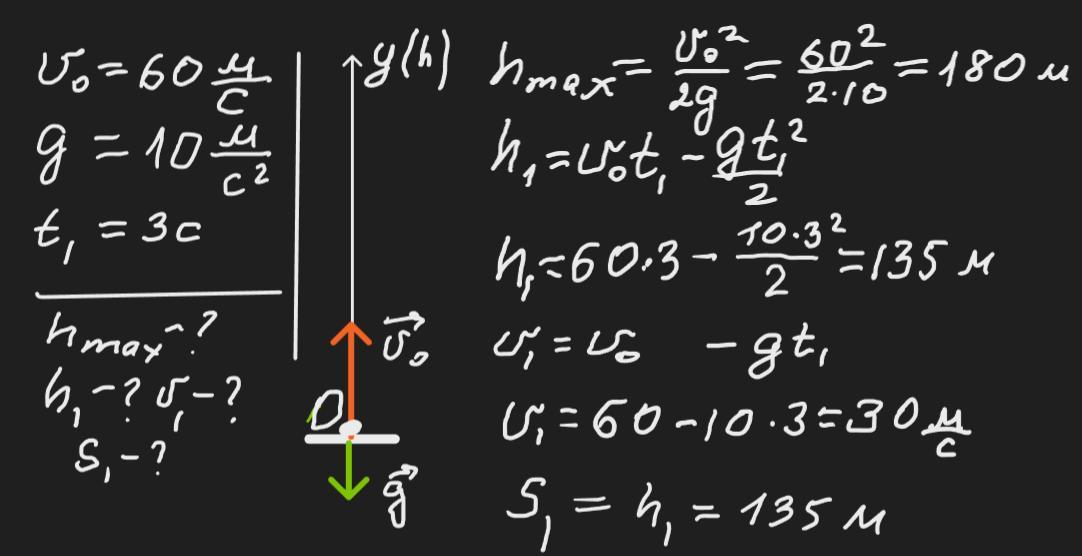 υ₀ = 60 м/с
g = 10 м/с²
t₁ = 3с
hmax - ?
h₁ - ? υ₁ - ?
S₁ - ?
y(h)
υ⃗₀
O
g⃗
hmax = υ₀²/2g = 60²/2·10 = 180 м
h₁ = υ₀t₁ - gt₁²/2
h₁ = 60·3 - 10·3²/2 = 135 м
υ₁ = υ₀ - gt₁
υ₁ = 60 - 10·3 = 30 м/с
S₁ = h₁ = 135 м